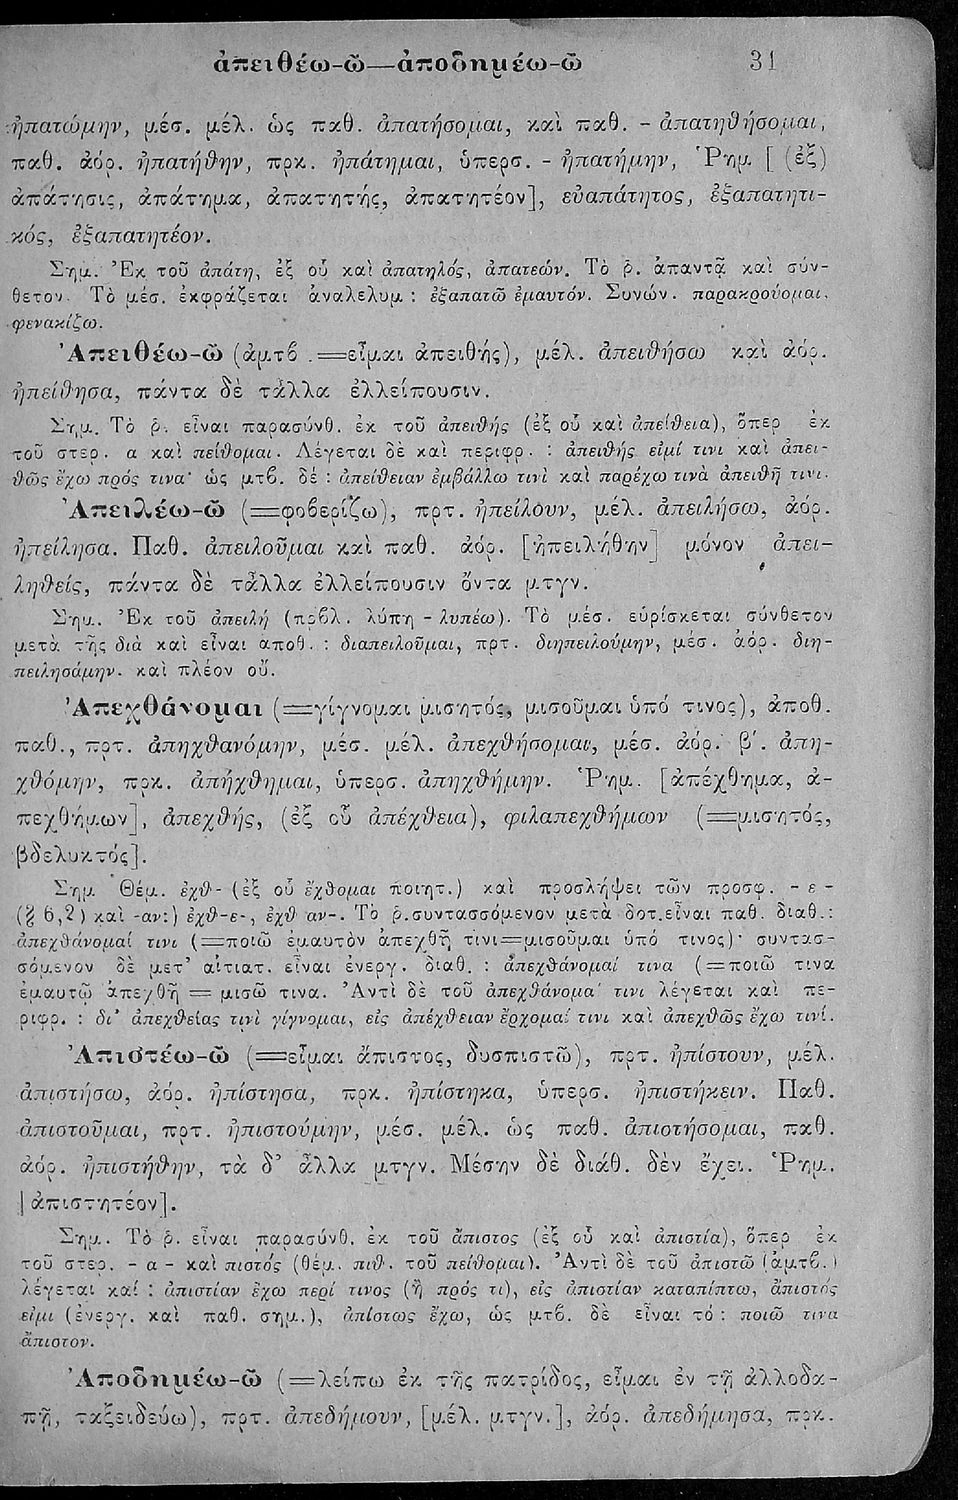 ἀπειθέω-ῶ—ἀποδημέω-ῶ 31
ἠπατώμην, μέσ. μέλ. ὡς παθ. ἀπατήσομαι, καὶ παθ. - ἀπατηθήσομαι,
παθ. ἀόρ. ἠπατήθην, πρκ. ἠπάτημαι, ὑπερσ. - ἠπατήμην, Ῥημ. [ (ἐξ)
ἀπάτησις, ἀπάτημα, ἀπατητής, ἀπατητέον], εὐαπάτητος, ἐξαπατητι-
κός, ἐξαπατητέον.
Σημ. Ἐκ τοῦ ἀπάτη, ἐξ οὗ καὶ ἀπατηλός, ἀπατεών. Τὸ ῥ. ἀπαντᾷ καὶ σύν-
θετον. Τὸ μέσ. ἐκφράζεται ἀναλελυμ. : ἐξαπατῶ ἐμαυτόν. Συνών. παρακρούομαι,
φενακίζω.
Ἀπειθέω-ῶ (ἀμτβ .=εἶμαι ἀπειθής), μέλ. ἀπειθήσω καὶ ἀόρ.
ἠπείθησα, πάντα δὲ τἆλλα ἐλλείπουσιν.
Σημ. Τὸ ῥ. εἶναι παρασύνθ. ἐκ τοῦ ἀπειθής (ἐξ οὗ καὶ ἀπείθεια), ὅπερ ἐκ
τοῦ στερ. α καὶ πείθομαι. Λέγεται δὲ καὶ περιφρ. : ἀπειθής εἰμί τινι καὶ ἀπει-
θῶς ἔχω πρός τινα· ὡς μτβ. δέ : ἀπείθειαν ἐμβάλλω τινὶ καὶ παρέχω τινὰ ἀπειθῆ τινι.
Ἀπειλέω-ῶ (=φοβερίζω), πρτ. ἠπείλουν, μέλ. ἀπειλήσω, ἀόρ.
ἠπείλησα. Παθ. ἀπειλοῦμαι καὶ παθ. ἀόρ. [ἠπειλήθην] μόνον ἀπει-
ληθείς, πάντα δὲ τἆλλα ἐλλείπουσιν ὄντα μτγν.
Σημ. Ἐκ τοῦ ἀπειλή (πρβλ. λύπη - λυπέω). Τὸ μέσ. εὑρίσκεται σύνθετον
μετὰ τῆς διὰ καὶ εἶναι ἀποθ. : διαπειλοῦμαι, πρτ. διηπειλούμην, μέσ. ἀόρ. διη-
πειλησάμην. καὶ πλέον οὔ.
Ἀπεχθάνομαι (=γίγνομαι μισητός, μισοῦμαι ὑπό τινος), ἀποθ.
παθ., πρτ. ἀπηχθανόμην, μέσ. μέλ. ἀπεχθήσομαι, μέσ. ἀόρ. β'. ἀπη-
χθόμην, πρκ. ἀπήχθημαι, ὑπερσ. ἀπηχθήμην. Ῥημ. [ἀπέχθημα, ἀ-
πεχθήμων], ἀπεχθής, (ἐξ οὗ ἀπέχθεια), φιλαπεχθήμων (=μισητός,
βδελυκτός].
Σημ. Θέμ. ἐχθ- (ἐξ οὗ ἔχθομαι ποιητ.) καὶ προσλήψει τῶν προσφ. - ε -
(§ 6,2) καὶ -αν:) ἐχθ-ε-, ἐχθ αν-. Τὸ ῥ. συντασσόμενον μετὰ δοτ. εἶναι παθ. διαθ.:
ἀπεχθάνομαί τινι (=ποιῶ ἐμαυτὸν ἀπεχθῆ τινι=μισοῦμαι ὑπό τινος)· συντασ-
σόμενον δὲ μετ' αἰτιατ. εἶναι ἐνεργ. διαθ. : ἀπεχθάνομαί τινα (=ποιῶ τινα
ἐμαυτῷ ἀπεχθῆ = μισῶ τινα. Ἀντὶ δὲ τοῦ ἀπεχθάνομαί τινι λέγεται καὶ πε-
ριφρ. : δι' ἀπεχθείας τινὶ γίγνομαι, εἰς ἀπέχθειαν ἔρχομαί τινι καὶ ἀπεχθῶς ἔχω τινί.
Ἀπιστέω-ῶ (=εἶμαι ἄπιστος, δυσπιστῶ), πρτ. ἠπίστουν, μέλ.
ἀπιστήσω, ἀόρ. ἠπίστησα, πρκ. ἠπίστηκα, ὑπερσ. ἠπιστήκειν. Παθ.
ἀπιστοῦμαι, πρτ. ἠπιστούμην, μέσ. μέλ. ὡς παθ. ἀπιστήσομαι, παθ.
ἀόρ. ἠπιστήθην, τὰ δ' ἄλλα μτγν. Μέσην δὲ διάθ. δὲν ἔχει. Ῥημ.
[ἀπιστητέον].
Σημ. Τὸ ῥ. εἶναι παρασύνθ. ἐκ τοῦ ἄπιστος (ἐξ οὗ καὶ ἀπιστία), ὅπερ ἐκ
τοῦ στερ. - α - καὶ πιστός (θέμ. πιθ. τοῦ πείθομαι). Ἀντὶ δὲ τοῦ ἀπιστῶ (ἀμτβ.)
λέγεται καί : ἀπιστίαν ἔχω περί τινος (ἢ πρός τι), εἰς ἀπιστίαν καταπίπτω, ἄπιστός
εἰμι (ἐνεργ. καὶ παθ. σημ.), ἀπίστως ἔχω, ὡς μτβ. δὲ εἶναι τό : ποιῶ τινα
ἄπιστον.
Ἀποδημέω-ῶ (=λείπω ἐκ τῆς πατρίδος, εἶμαι ἐν τῇ ἀλλοδα-
πῇ, ταξειδεύω), πρτ. ἀπεδήμουν, [μέλ. μτγν.], ἀόρ. ἀπεδήμησα, πρκ.